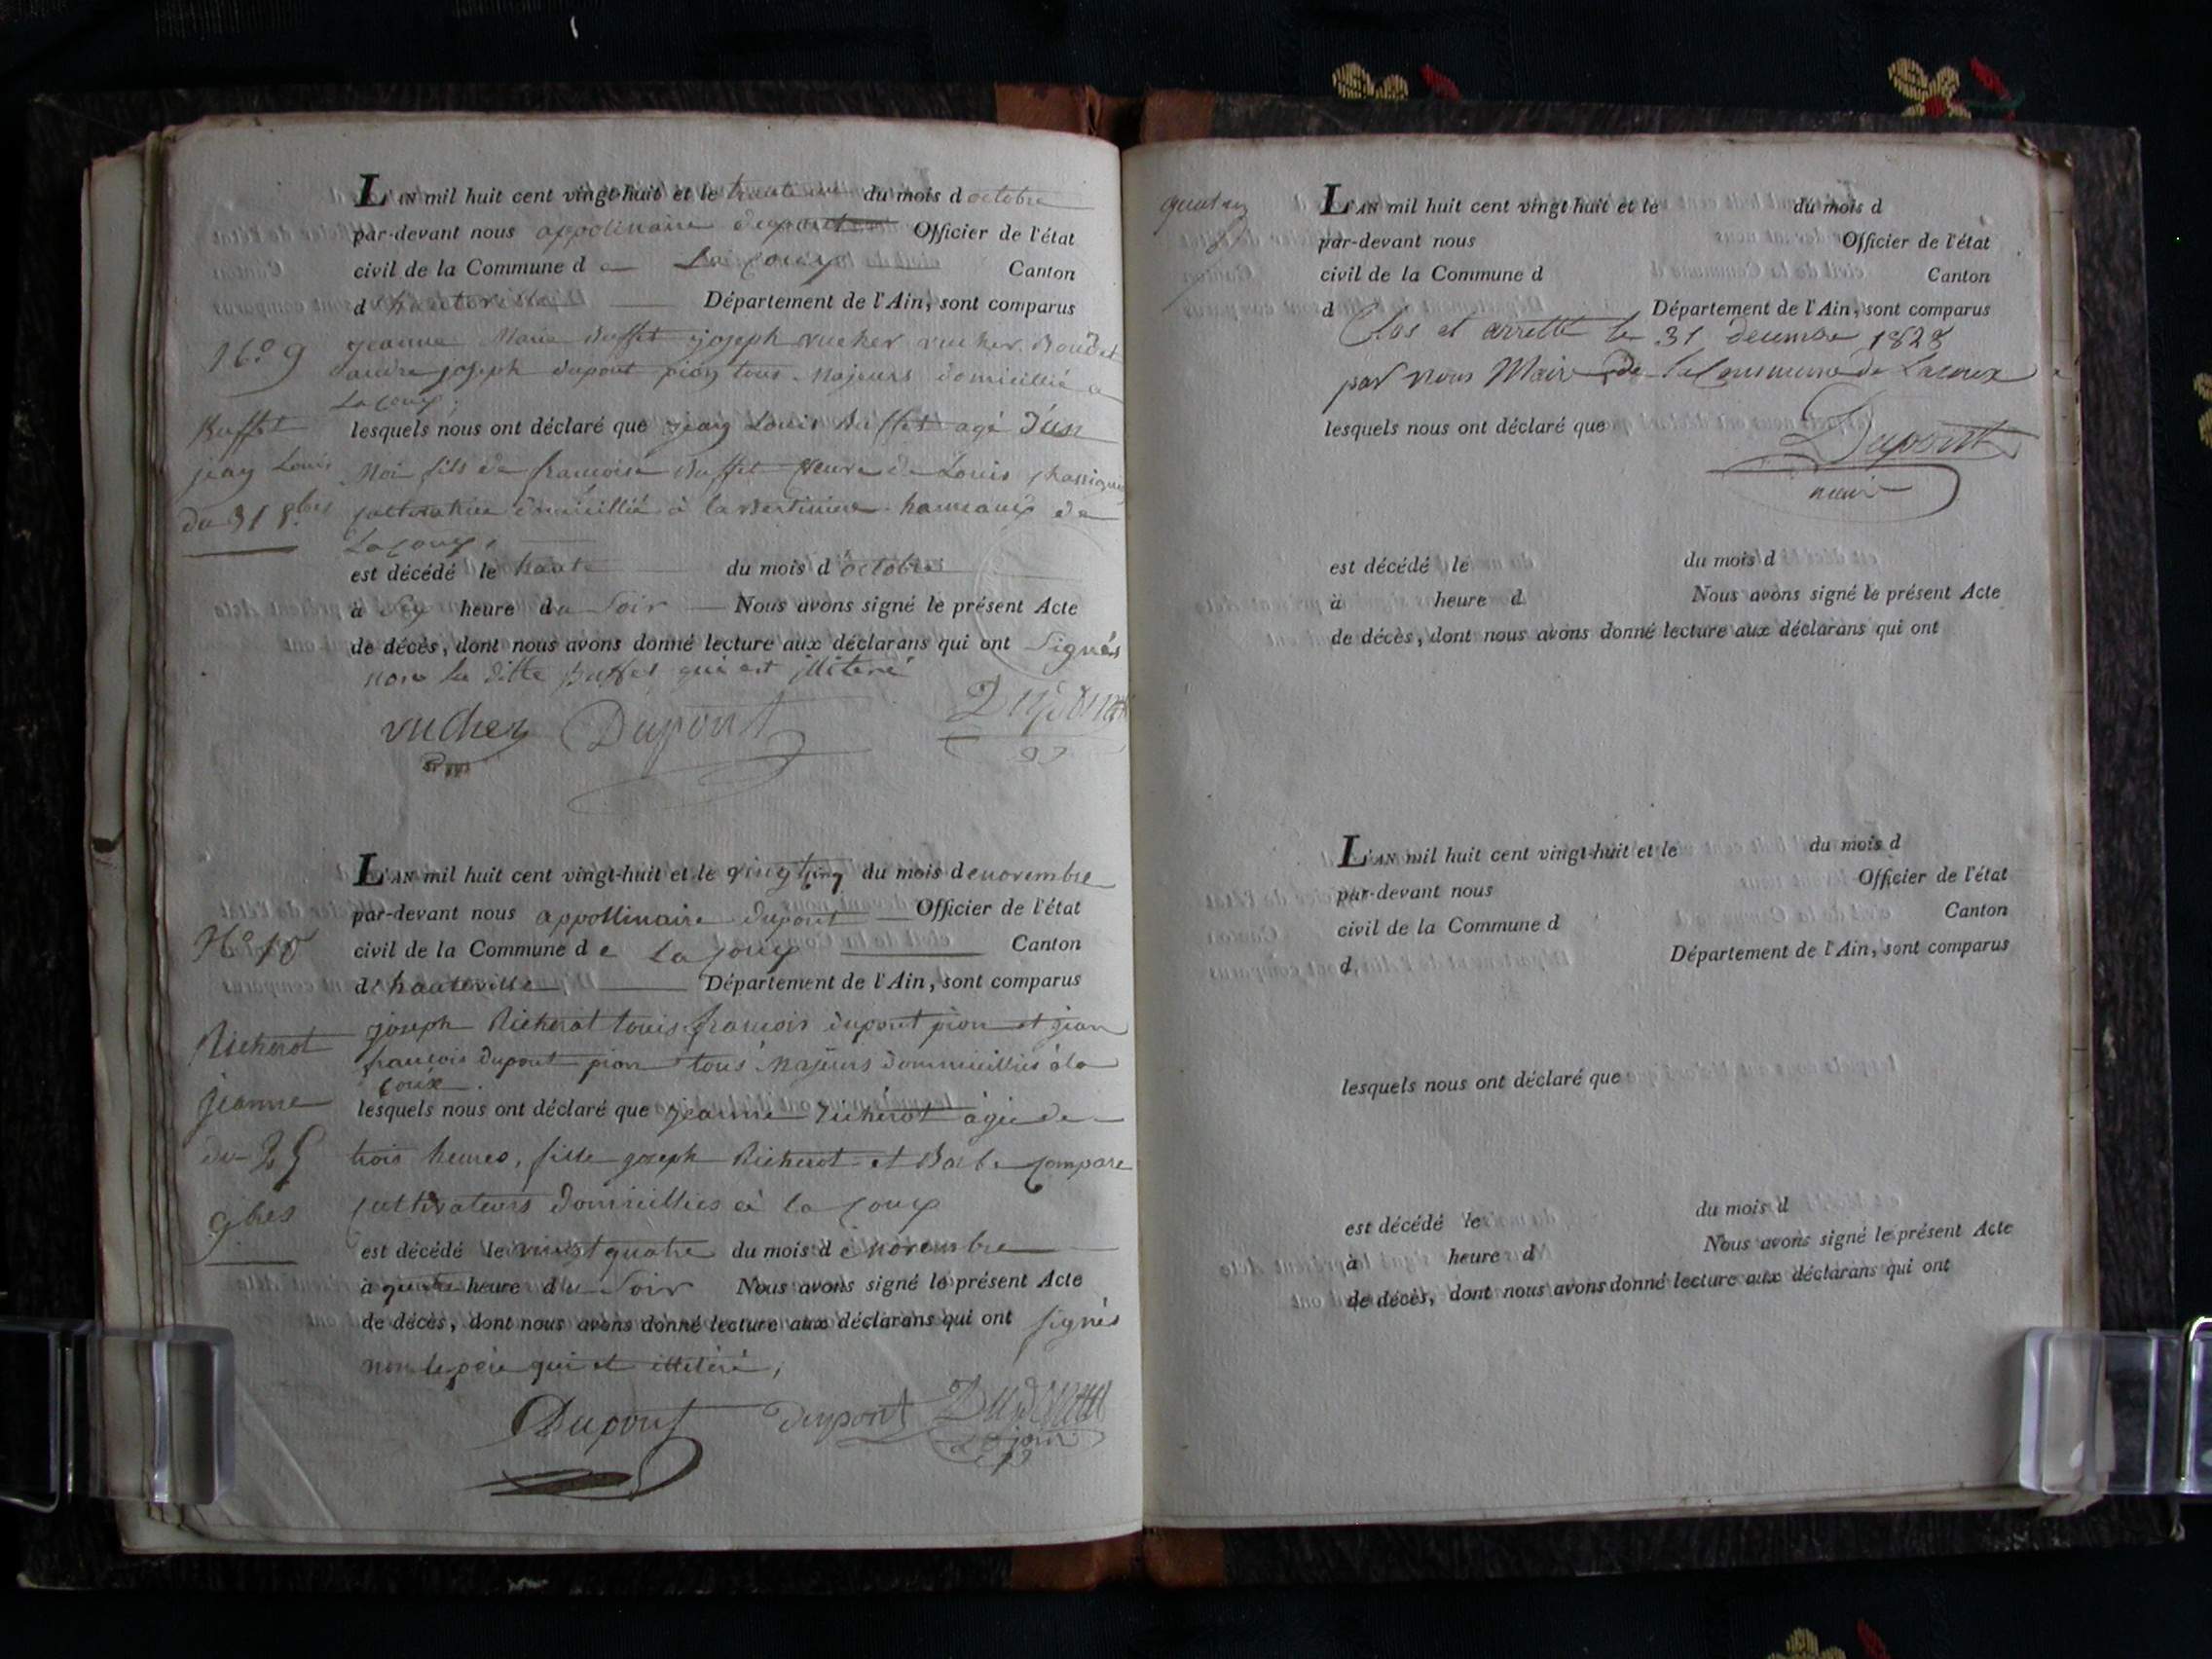 L'AN mil huit cent vingt-huit et le trente un du mois d octobre
par-devant nous appolinaire dupont Officier de l'état
civil de la Commune d e La Coux Canton
d hauteville Département de l'Ain, sont comparus
N.º 9
jeanne Marie Buffet joseph vucher
joseph dupont pion tous Majeurs domicillié a
La coux,
Buffet
jean Louis
du 31 8bres
lesquels nous ont déclaré que jean Louis Buffet agé d'un
Moi fils de francoise Buffet Veuve de Louis
cultivatrice domicillié à la hameaux de
La coux,
est décédé le trente du mois d'octobre
à Six heure du Soir Nous avons signé le présent Acte
de décès, dont nous avons donné lecture aux déclarans qui ont Signés
non la ditte Buffet qui est illiteré
vucher Dupont Dupont
L'AN mil huit cent vingt-huit et le vingt cinq du mois de novembre
par-devant nous appollinaire dupont Officier de l'état
N.º 10
civil de la Commune de La coux Canton
d'hauteville Département de l'Ain, sont comparus
Richerot
jeanne
du 25
9bres
joseph Richerot louis francois dupont pion et jean
francois dupont pion tous Majeurs domicilliés à la
coux.
lesquels nous ont déclaré que jeanne Richerot agée de
trois heures, fille joseph Richerot et Barbe compare
cultivateurs domicilliés à la coux
est décédé le vingt quatre du mois de novembre
à quatre heure du Soir Nous avons signé le présent Acte
de décès, dont nous avons donné lecture aux déclarans qui ont signés
non le père qui et illitéré,
Dupont dupont Dupont
L'AN mil huit cent vingt-huit et le du mois d
par-devant nous Officier de l'état
civil de la Commune d Canton
d Département de l'Ain, sont comparus
Clos et arretté le 31 decembre 1828
par nous Maire de la Commune de Lacoux
lesquels nous ont déclaré que
Dupont
maire
est décédé le du mois d
à heure d Nous avons signé le présent Acte
de décès, dont nous avons donné lecture aux déclarans qui ont
L'AN mil huit cent vingt-huit et le du mois d
par-devant nous Officier de l'état
civil de la Commune d Canton
d Département de l'Ain, sont comparus
lesquels nous ont déclaré que
est décédé le du mois d
à heure d Nous avons signé le présent Acte
de décès, dont nous avons donné lecture aux déclarans qui ont